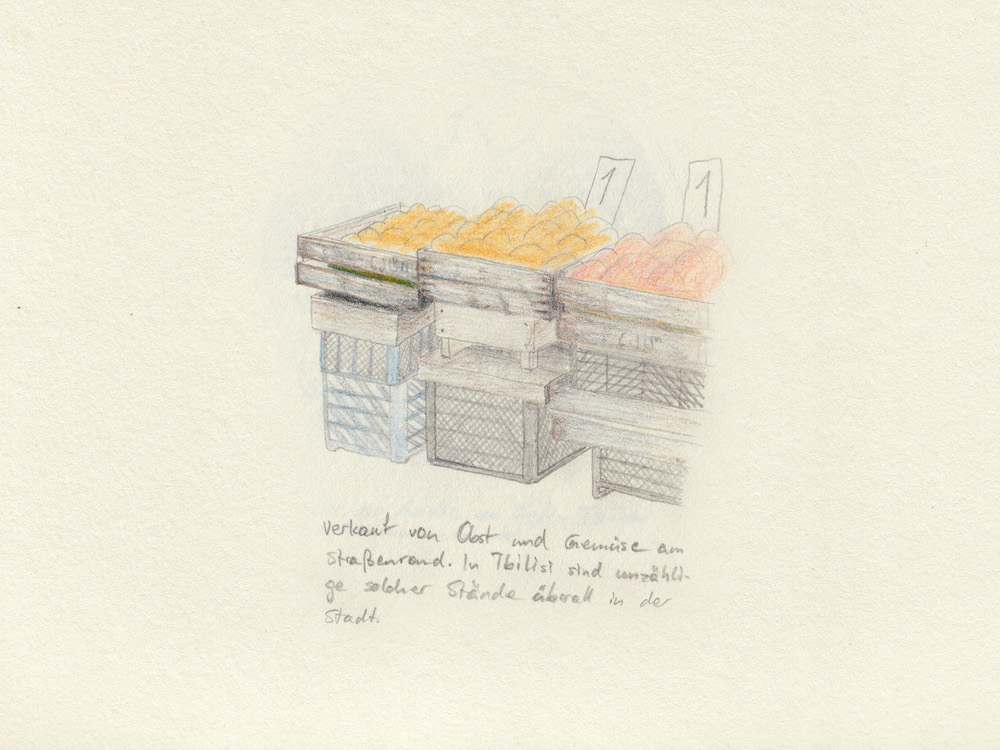 1 1
Verkauf von Obst und Gemüse am
Straßenrand. In Tbilisi sind unzähli-
ge solcher Stände überall in der
Stadt.